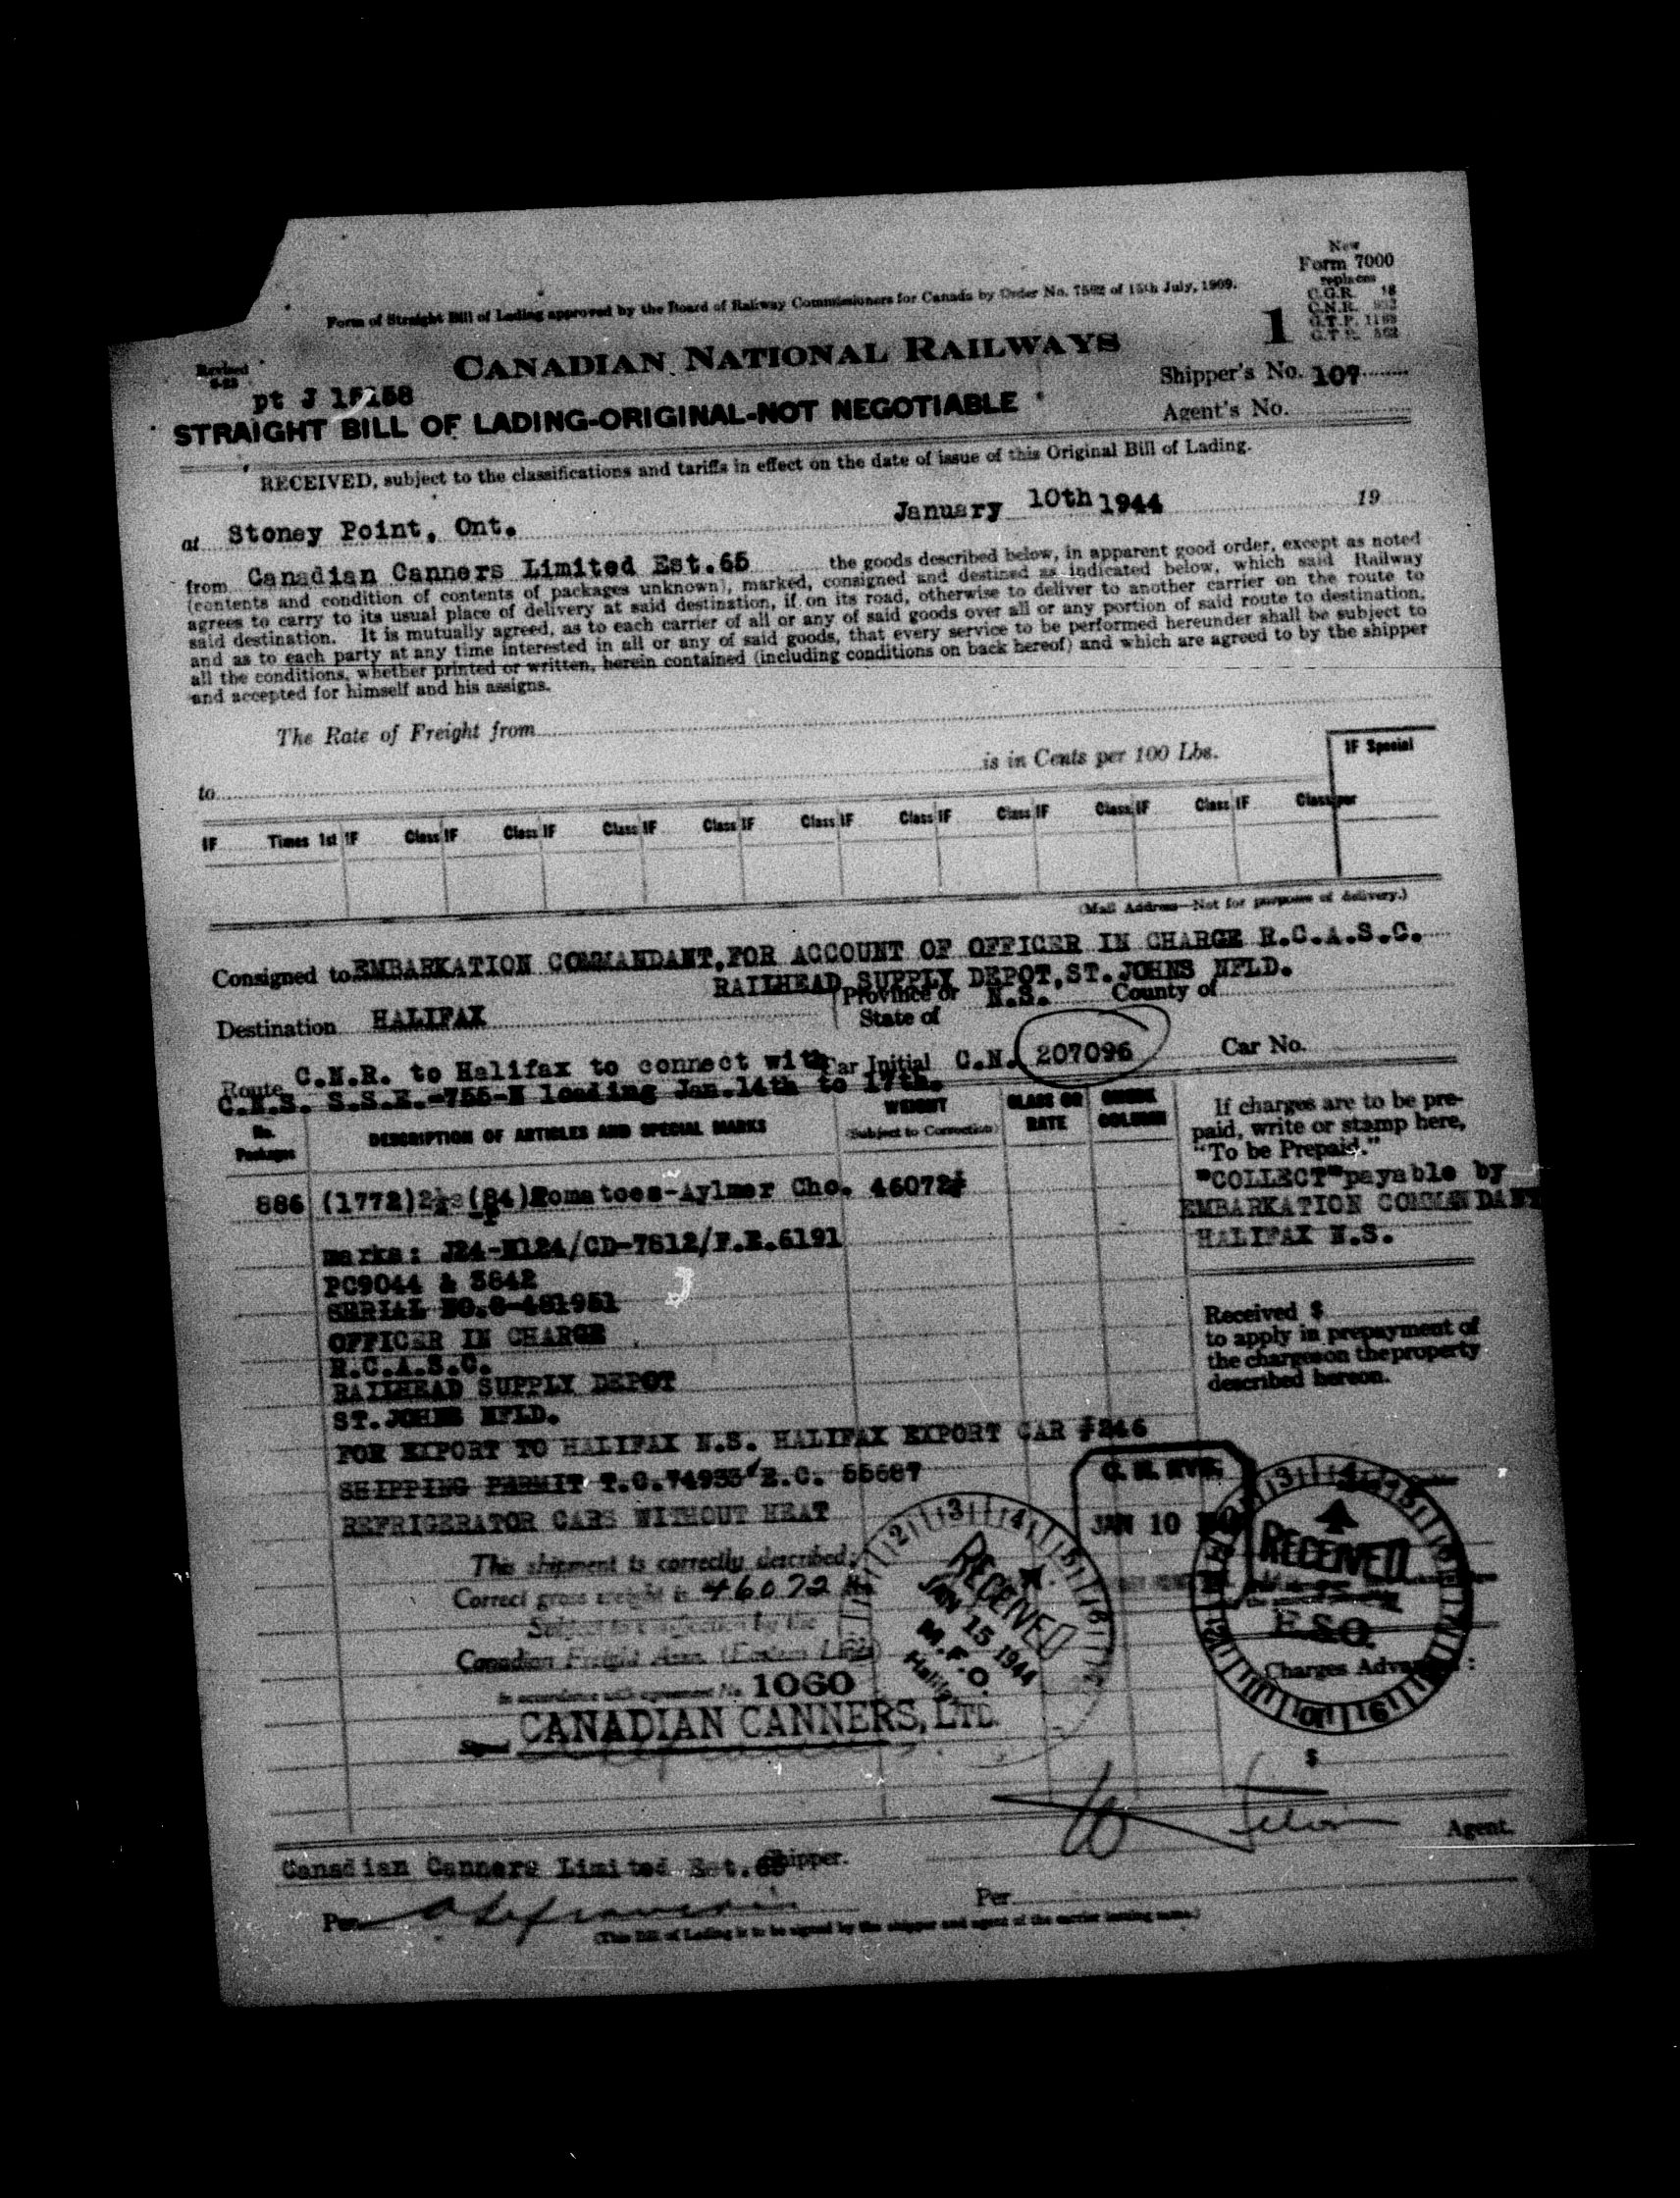 New
Form 7000
replaces
C.G.R. 18
C.N.R. 992
G.T.P. 1168
G.T.P. 562
Form of Straight Bill of Lading approved by the Board of Railway Commissioners for Canada by Order No. 7562 of 15th July, 1909.
1
Revised
CANADIAN NATIONAL RAILWAYS
Shipper's No. 107
pt J 15158
STRAIGHT BILL OF LADING-ORIGINAL-NOT NEGOTIABLE
Agent's No.
RECEIVED, subject to the classifications and tariffs in effect on the date of issue of this Original Bill of Lading.
at Stoney Point, Ont. January 10th 1944 19
from Canadian Canners Limited Est.65 the goods described below, in apparent good order, except as noted
(contents and condition of contents of packages unknown), marked, consigned and destined as indicated below, which said Railway
agrees to carry to its usual place of delivery at said destination, if on its road, otherwise to deliver to another carrier on the route to
said destination. It is mutually agreed, as to each carrier of all or any of said goods over all or any portion of said route to destination,
and as to each party at any time interested in all or any of said goods, that every service to be performed hereunder shall be subject to
all the conditions, whether printed or written, herein contained (including conditions on back hereof) and which are agreed to by the shipper
and accepted for himself and his assigns.
The Rate of Freight from
to is in Cents per 100 Lbs.
IF Special
IF Times 1st IF Class IF Class IF Class IF Class IF Class IF Class IF Class IF Class IF Class IF Class per
(Mail Address—Not for purposes of delivery.)
Consigned to EMBARKATION COMMANDANT, FOR ACCOUNT OF OFFICER IN CHARGE R.C.A.S.C.
RAILHEAD SUPPLY DEPOT, ST. JOHNS NFLD.
Destination HALIFAX Province or State of N.S. County of
Route C.N.R. to Halifax to connect with Car Initial C.N. 207096 Car No.
C.N.S. S.S.E.-755-N loading Jan.14th to 17th.
No. Packages DESCRIPTION OF ARTICLES AND SPECIAL MARKS WEIGHT (Subject to Correction) CLASS OR RATE CHECK COLUMN
If charges are to be pre-
paid, write or stamp here,
"To be Prepaid."
"COLLECT" payable by
EMBARKATION COMMANDANT
HALIFAX N.S.
886 (1772)2½s(24)Tomatoes-Aylmer Che. 46072#
marks: J24-N124/CD-7612/F.E.6191
PC9044 & 3642
SERIAL NO.C-481951
OFFICER IN CHARGE
R.C.A.S.C.
RAILHEAD SUPPLY DEPOT
ST.JOHNS NFLD.
Received $
to apply in prepayment of
the charges on the property
described hereon.
FOR EXPORT TO HALIFAX N.S. HALIFAX EXPORT CAR #246
SHIPPING PERMIT T.C.74933 E.C. 55687
REFRIGERATOR CARS WITHOUT HEAT
C. N. RYS.
JAN 10
RECEIVED
E.S.O.
This shipment is correctly described.
Correct gross weight is 46072 lbs
Subject to correction by the
Canadian Freight Assn. (Eastern Lines)
in accordance with agreement No. 1060
Signed CANADIAN CANNERS, LTD.
RECEIVED
JAN 15 1944
M.F.O.
Halifax
Charges Advanced:
$
Agent.
Canadian Canners Limited Est.65 Shipper.
Per
Per
(This Bill of Lading is to be signed by the shipper and agent of the carrier issuing same.)